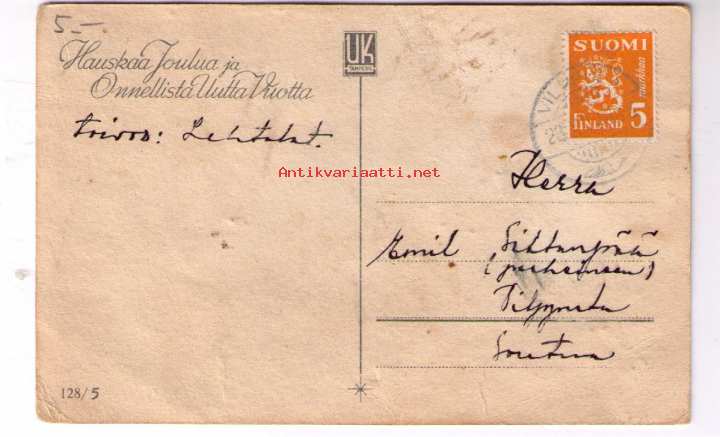 5.-
Hauskaa Joulua ja
Onnellista Uutta Vuotta
toivoo: Lehtolat.
UK
TAMPERE
SUOMI
5 markkaa
FINLAND
VILP
Antikvariaatti.net
Herra
Emil
(perheineen)
128/5